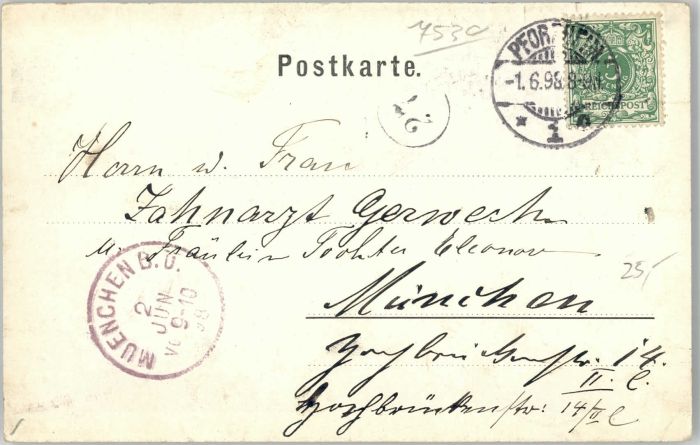 7530
Postkarte.
PFORZHEIM
-1.6.98.8-9N.
* 1
REICHSPOST
27
Herrn u. Frau
Zahnarzt Gerwech
u. Fräulein Tochter Eleonor
25,-
München
Hochbrückenstr. 14.
II. l.
Hochbrückenstr: 14/II l
MUENCHEN B.O.
2
JUN
9-10
98